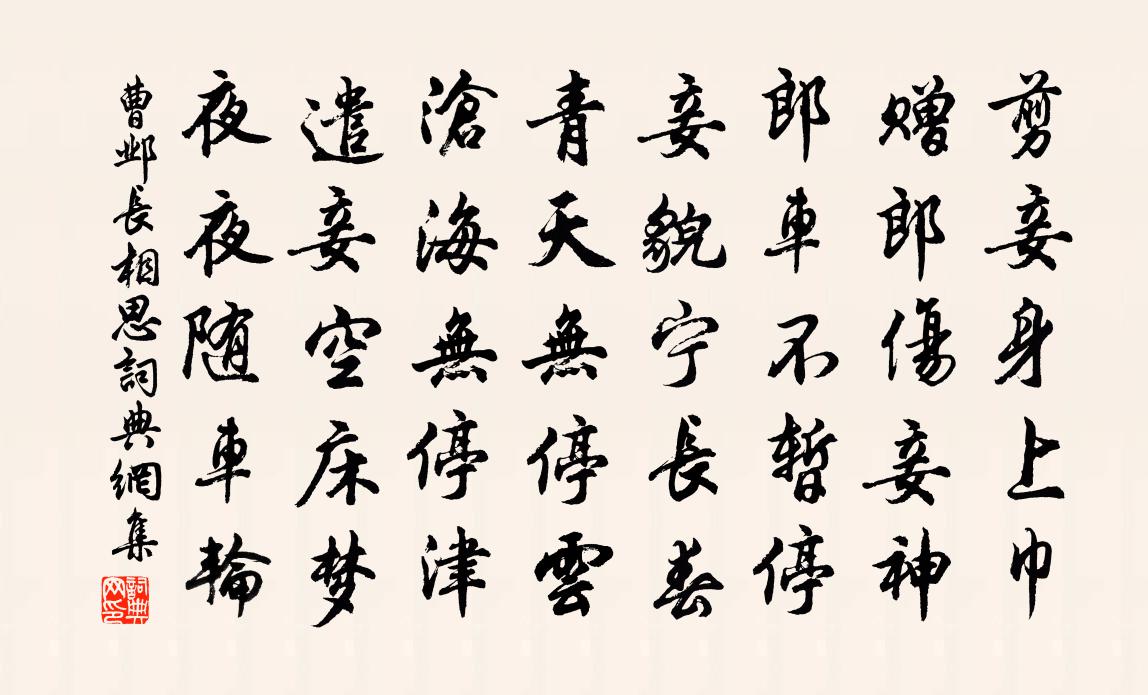 剪妾身上巾
赠郎傷妾神
郎車不暂停
妾貌宁長春
青天無停雲
滄海無停津
遣妾空床梦
夜夜随車輪
曹邺長相思詞典網集
詞典网印